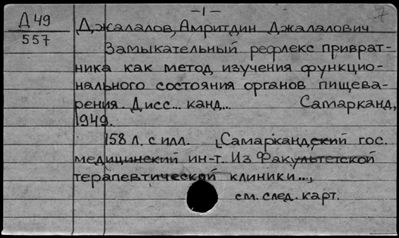 -1-
Д 49
557
Джалалов, Амритдин Джалалович
Замыкательный рефлекс приврат-
ника как метод изучения функцио-
нального состояния органов пищева-
рения. Дисс... канд... Самарканд,
1949.
158 л. с илл. (Самаркандский гос.
медицинский ин-т. Из Факультетской
терапевтической клиники...,
см. след. карт.